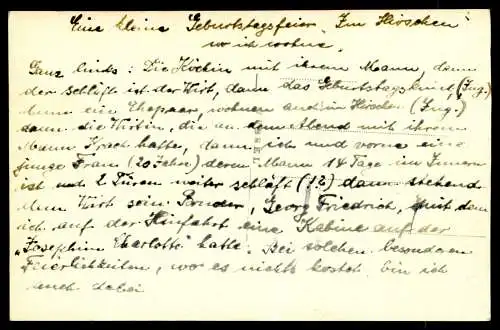 Eine kleine Geburtstagsfeier "Im Hirschen"
wo ich wohne.
Ganz links: Die Köchin mit ihrem Mann, dann
der schläft ist der Wirt, dann das Geburtstagskind (Ing.)
dann ein Ehepaar, wohnen auch im Hirschen (Ing.)
dann die Wirtin, die an dem Abend mit ihrem
Mann Krach hatte, dann ich und vorne eine
junge Frau (20 Jahre) deren Mann 14 Tage im Innern
ist und 2 Türen weiter schläft (12) dann stehend
dem Wirt sein Bruder, Georg Friedrich, mit dem
ich auf der Hinfahrt eine Kabine auf der
"Josephine Charlotte" hatte. Bei solchen besonderen
Feierlichkeiten, wo es nichts kostet bin ich
auch dabei